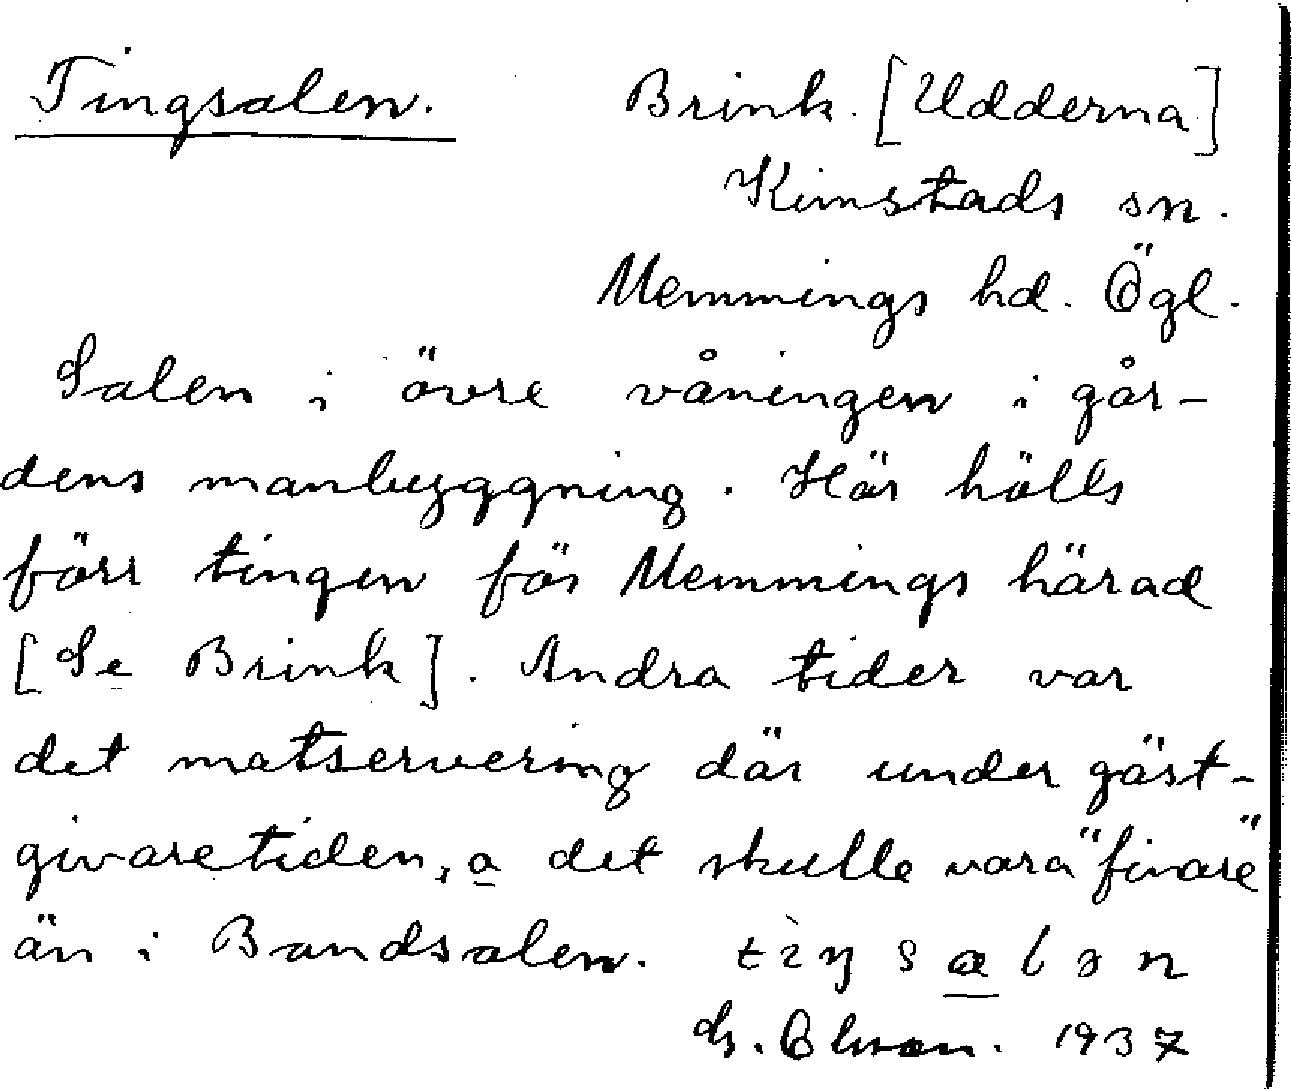 Tingsalen. Brink. [Udderna]
Kimstads sn.
Memmings hd. Ögl.
Salen i övre våningen i går-
dens manbyggning. Här hölls
förr tingen för Memmings härad
[Se Brink]. Andra tider var
det matservering där under gäst-
givaretiden, o det skulle vara "finare"
än i Bondsalen.
G. Olsson. 1937